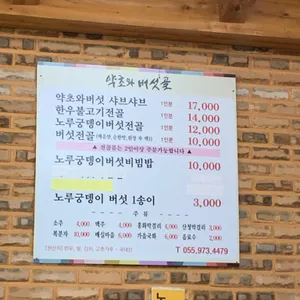 약초와 버섯골
약초와버섯 샤브샤브 1인분 17,000
한우불고기전골 1인분 14,000
노루궁뎅이버섯전골 1인분 12,000
버섯전골 1인분 10,000
▲ 전골류는 2인이상 주문가능합니다 ▲
노루궁뎅이버섯비빔밥 10,000
노루궁뎅이 버섯 1송이 3,000
주 류
소주 4,000 맥주 4,000 동화막걸리 3,000 산청막걸리 2,000
복분자 10,000 매실마을 6,000 가을국화 4,000 음료수 2,000
T 055.973.4479